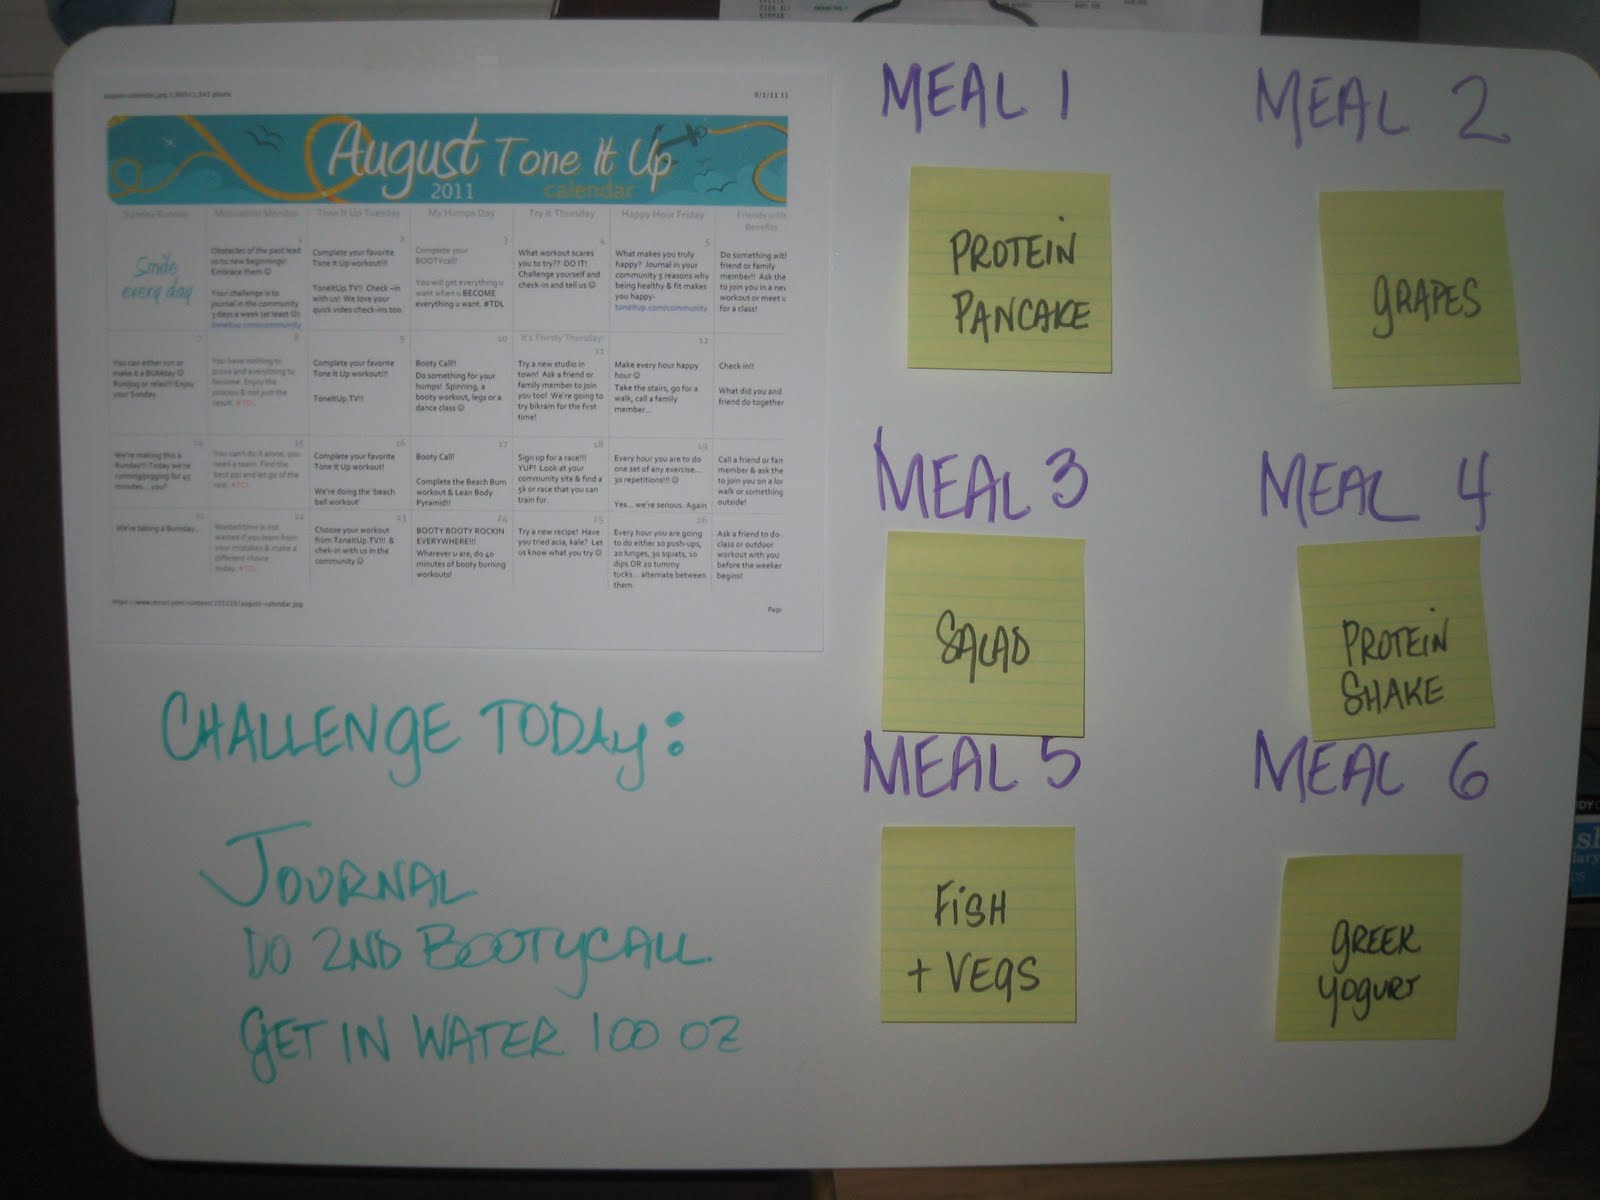 8/1/11 11
August Tone It Up
2011 calendar
Sunday Runday
Motivation Monday
Tone It Up Tuesday
My Humps Day
Try It Thursday
Happy Hour Friday
Friends with
Benefits
Smile
every day
1
Obstacles of the past lead
us to new beginnings!
Embrace them ☺
Your challenge is to
journal in the community
3 days a week (at least ☺)
toneitup.com/community
2
Complete your favorite
Tone It Up workout!!!
ToneItUp.TV!! Check –in
with us! We love your
quick video check-ins too.
3
Complete your
BOOTYcall!
You will get everything u
want when u BECOME
everything u want. #TDL
4
What workout scares
you to try?? DO IT!
Challenge yourself and
check-in and tell us ☺
5
What makes you truly
happy? Journal in your
community 5 reasons why
being healthy & fit makes
you happy-
toneitup.com/community
Do something with
friend or family
member!! Ask the
to join you in a new
workout or meet u
for a class!
7
You can either run or
make it a BUMday ☺
Run/jog or relax!!! Enjoy
your Sunday.
8
You have nothing to
prove and everything to
become. Enjoy the
process & not just the
result. #TDL
9
Complete your favorite
Tone It Up workout!!!
ToneItUp TV!!
10
Booty Call!!
Do something for your
humps! Spinning, a
booty workout, legs or a
dance class ☺
It's Thirsty Thursday!
11
Try a new studio in
town! Ask a friend or
family member to join
you too! We're going to
try bikram for the first
time!
12
Make every hour happy
hour ☺
Take the stairs, go for a
walk, call a family
member...
Check in!!
What did you and
friend do together
14
We're making this a
Runday!!! Today we're
running/jogging for 45
minutes... you?
15
You can't do it alone, you
need a team. Find the
best ppl and let go of the
rest. #TDL
16
Complete your favorite
Tone It Up workout!
We're doing the 'beach
ball workout'
17
Booty Call!
Complete the Beach Bum
workout & Lean Body
Pyramid!!
18
Sign up for a race!!!
YUP! Look at your
community site & find a
5k or race that you can
train for.
19
Every hour you are to do
one set of any exercise...
30 repetitions!!! ☺
Yes... we're serious. Again
Call a friend or fam
member & ask the
to join you on a lon
walk or something
outside!
We're taking a Bumday..
22
Wasted time is not
wasted if you learn from
your mistakes & make a
different choice
today. #TDL
23
Choose your workout
from ToneItUp.TV!!! &
chek-in with us in the
community ☺
24
BOOTY BOOTY ROCKIN
EVERYWHERE!!!
Wherever u are, do 40
minutes of booty burning
workouts!
25
Try a new recipe! Have
you tried acia, kale? Let
us know what you try ☺
26
Every hour you are going
to do either 10 push-ups,
20 lunges, 30 squats, 10
dips OR 20 tummy
tucks... alternate between
them
Ask a friend to do
class or outdoor
workout with you
before the weeken
begins!
Page
CHALLENGE TODAY:
JOURNAL
DO 2ND BOOTYCALL
GET IN WATER 100 OZ
MEAL 1
PROTEIN
PANCAKE
MEAL 2
GRAPES
MEAL 3
SALAD
MEAL 4
PROTEIN
SHAKE
MEAL 5
FISH
+ VEGS
MEAL 6
GREEK
YOGURT